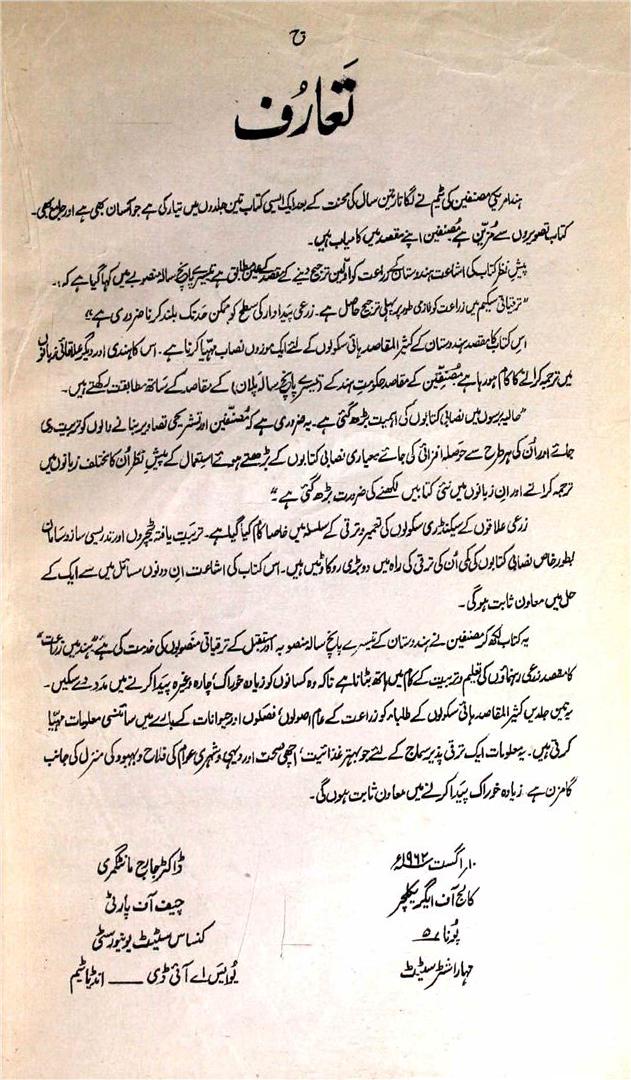 ح
تعارُف
ہند امریکی مصنفین کی ٹیم نے لگاتار تین سال کی محنت کے بعد ایک ایسی کتاب تین جلدوں میں تیار کی ہے جو آسان بھی ہے اور جامع بھی۔
کتاب تصویروں سے مُزیّن ہے مُصنفین اپنے مقصد میں کامیاب ہیں۔
پیشِ نظر کتاب کی اشاعت ہندوستان کے زراعت کو اوّلین ترجیح دینے کے مقصد کے عین مطابق ہے تیسرے پانچ سالہ منصوبے میں کہا گیا ہے کہ:۔
"ترقیاتی سکیم میں زراعت کو لازمی طور پر پہلی ترجیح حاصل ہے۔ زرعی پیداوار کی سطح کو ممکن حد تک بلند کرنا ضروری ہے"
اس کتاب کا مقصد ہندوستان کے کثیر المقاصد ہائی سکولوں کے لئے ایک موزوں نصاب مہیّا کرنا ہے۔ اس کا ہندی اور دیگر علاقائی زبانوں
میں ترجمہ کرانے کا کام ہو رہا ہے مُصنّفین کے مقاصد حکومتِ ہند کے (تیسرے پانچ سالہ پلان) کے مقاصد کے ساتھ مطابقت رکھتے ہیں۔
"حالیہ برسوں میں نصابی کتابوں کی اہمیت بڑھ گئی ہے۔ یہ ضروری ہے کہ مُصنّفین اور تشریحی تصاویر بنانے والوں کو تربیت دی
جائے اور اُن کی ہر طرح سے حوصلہ افزائی کی جائے معیاری نصابی کتابوں کے بڑھتے ہوئے استعمال کے پیشِ نظر اُن کا مختلف زبانوں میں
ترجمہ کرانے اور ان زبانوں میں نئی کتابیں لکھنے کی ضرورت بڑھ گئی ہے۔"
زرعی علاقوں کے سیکنڈری سکولوں کی تعمیر و ترقی کے سلسلہ میں خاصا کام کیا گیا ہے۔ تربیت یافتہ ٹیچروں اور تدریسی سازوسامان
بطورِ خاص نصابی کتابوں کی کمی اُن کی ترقی کی راہ میں دو بڑی روکاوٹیں ہیں۔ اس کتاب کی اشاعت ان دونوں مسائل میں سے ایک کے
حل میں معاون ثابت ہوگی۔
یہ کتاب لکھ کر مصنفین نے ہندوستان کے تیسرے پانچ سالہ منصوبہ اور مستقبل کے ترقیاتی منصوبوں کی خدمت کی ہے "ہند میں زراعت"
کا مقصد زرعی رہنماؤں کی تعلیم و تربیت کے کام میں ہاتھ بٹانا ہے تاکہ وہ کسانوں کو زیادہ خوراک، چارہ وغیرہ پیدا کرنے میں مدد دے سکیں۔
یہ تین جلدیں کثیر المقاصد ہائی سکولوں کے طلباء کو زراعت کے عام اصولوں، فصلوں اور حیوانات کے بارے میں سائنسی معلومات مہیّا
کرتی ہیں۔ یہ معلومات ایک ترقی پذیر سماج کے لئے جو بہتر غذائیت، اچھی صحت اور دیہی و شہری عوام کی فلاح و بہبود کی منزل کی جانب
گامزن ہے، زیادہ خوراک پیدا کرنے میں معاون ثابت ہوں گی۔
۱۰؍ اگست ۱۹۶۲ء
کالج آف ایگریکلچر
پُونا۔۵
مہاراشٹر سٹیٹ
ڈاکٹر جارج مانٹگمری
چیف آف پارٹی
کنساس سٹیٹ یونیورسٹی
یو ایس اے آئی ڈی ــــ انڈیا ٹیم